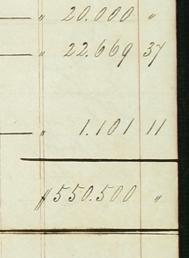 — " 20.000 "
— " 22.669 37
— " 1.101 11
$550.500 "